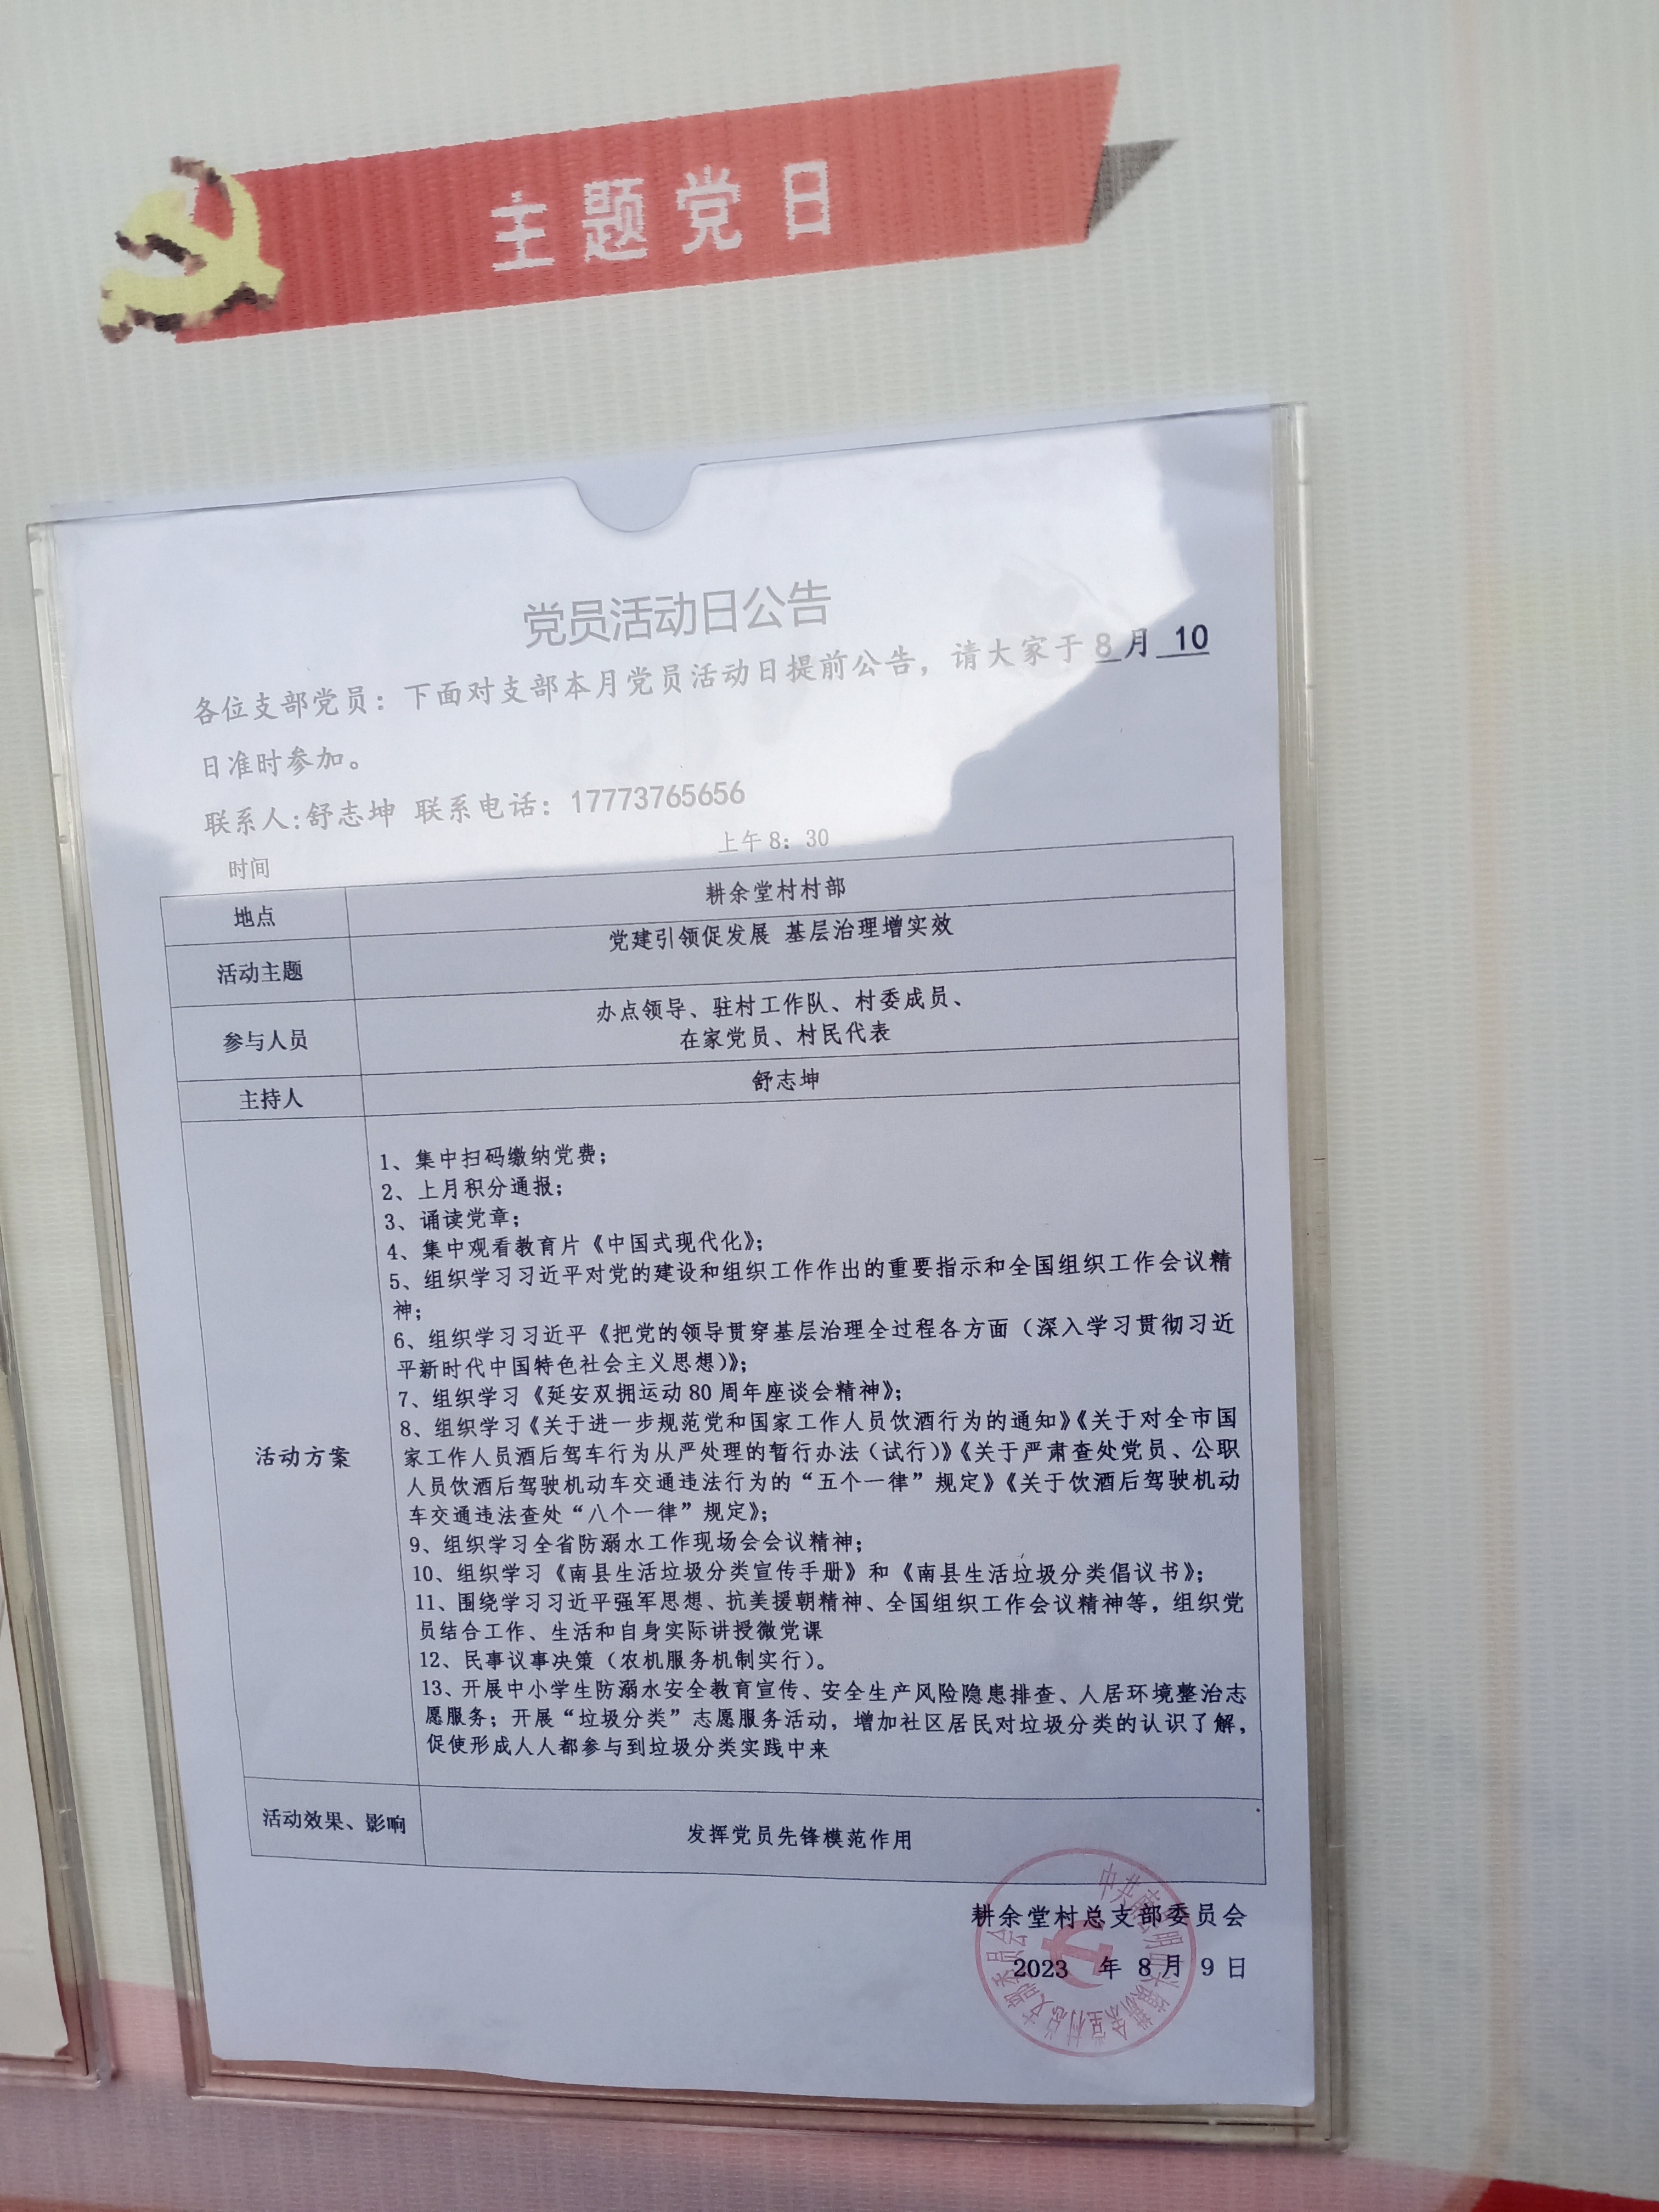 主题党日
党员活动日公告
各位支部党员：下面对支部本月党员活动日提前公告，请大家于 8 月 10
日准时参加。
联系人:舒志坤 联系电话：17773765656
时间 上午 8：30
地点 耕余堂村村部
活动主题 党建引领促发展 基层治理增实效
参与人员 办点领导、驻村工作队、村委成员、
在家党员、村民代表
主持人 舒志坤
活动方案
1、集中扫码缴纳党费；
2、上月积分通报；
3、诵读党章；
4、集中观看教育片《中国式现代化》；
5、组织学习习近平对党的建设和组织工作作出的重要指示和全国组织工作会议精
神；
6、组织学习习近平《把党的领导贯穿基层治理全过程各方面（深入学习贯彻习近
平新时代中国特色社会主义思想）》；
7、组织学习《延安双拥运动 80 周年座谈会精神》；
8、组织学习《关于进一步规范党和国家工作人员饮酒行为的通知》《关于对全市国
家工作人员酒后驾车行为从严处理的暂行办法（试行）》《关于严肃查处党员、公职
人员饮酒后驾驶机动车交通违法行为的“五个一律”规定》《关于饮酒后驾驶机动
车交通违法查处“八个一律”规定》；
9、组织学习全省防溺水工作现场会会议精神；
10、组织学习《南县生活垃圾分类宣传手册》和《南县生活垃圾分类倡议书》；
11、围绕学习习近平强军思想、抗美援朝精神、全国组织工作会议精神等，组织党
员结合工作、生活和自身实际讲授微党课
12、民事议事决策（农机服务机制实行）。
13、开展中小学生防溺水安全教育宣传、安全生产风险隐患排查、人居环境整治志
愿服务；开展“垃圾分类”志愿服务活动，增加社区居民对垃圾分类的认识了解，
促使形成人人都参与到垃圾分类实践中来
活动效果、影响 发挥党员先锋模范作用
耕余堂村总支部委员会
2023 年 8 月 9 日